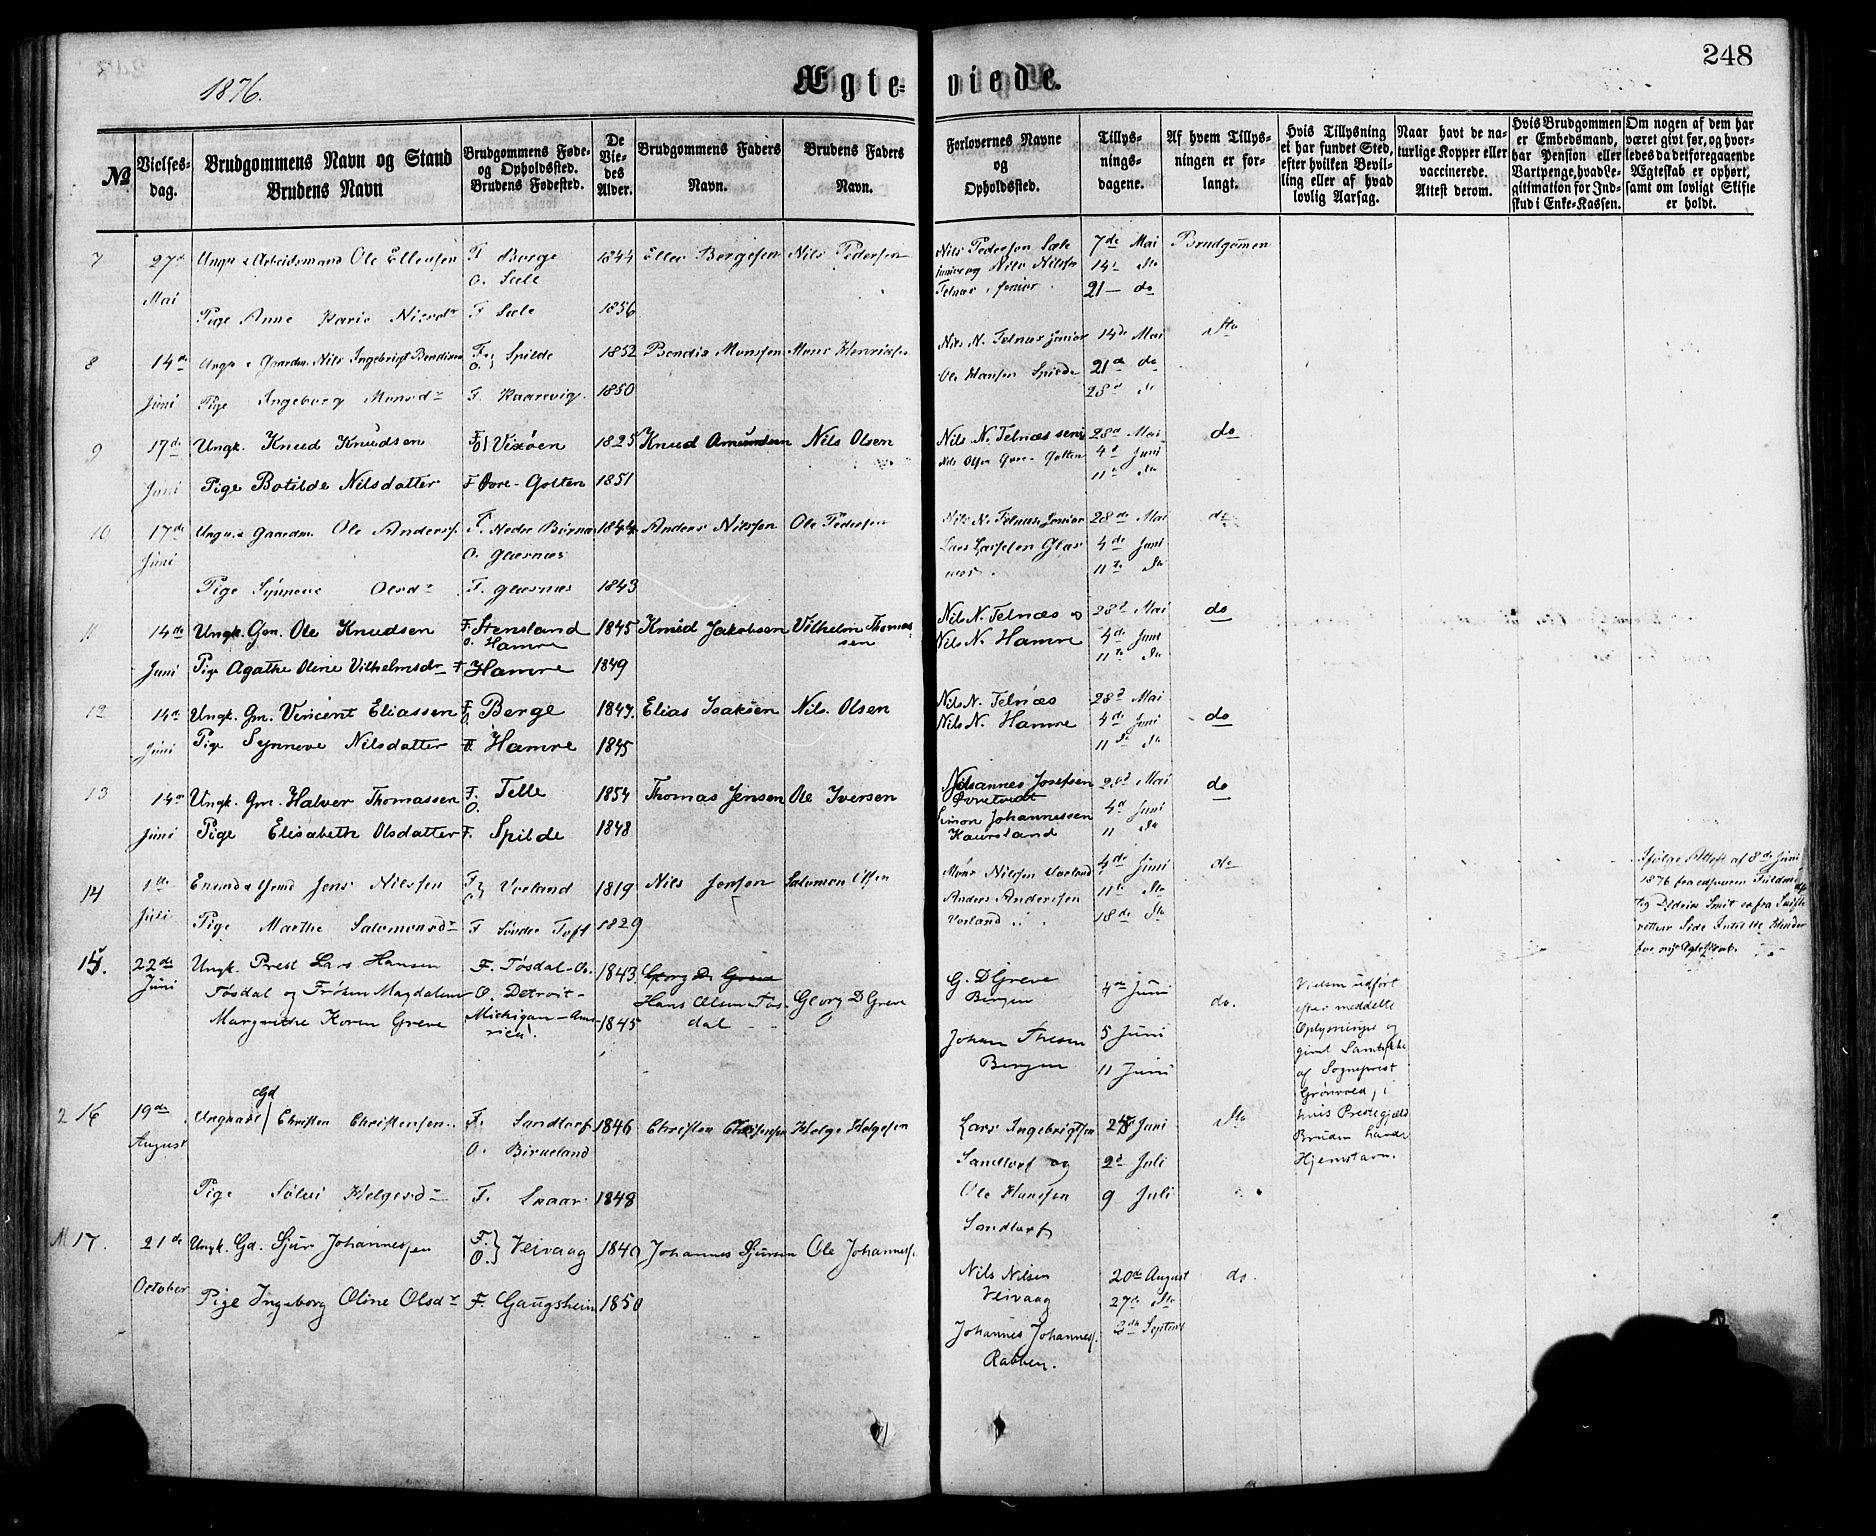 248
1876.
Ægteviede.
№
Vielsesdag.
Brudgommens Navn og Stand
Brudens Navn
Brudgommens Føde-
og Opholdssted.
Brudens Fødested.
De
Vie-
des
Alder.
Brudgommens Faders
Navn.
Brudens Faders
Navn.
Forlovernes Navne
og
Opholdssted.
Tillys-
nings-
dagene.
Af hvem Tillys-
ningen er for-
langt.
Hvis Tillysning
ei har fundet Sted,
efter hvilken Bevil-
ling eller af hvad
lovlig Aarsag.
Naar havt de na-
turlige Kopper eller
vaccinerede.
Attest derom.
Hvis Brudgommen
er Embedsmand,
har Pension eller
Vartpenge, hvad Le-
gitimation for Ind-
skud i Enke-Kassen.
Om nogen af dem har
været givt før, og hvor-
ledes da det foregaaende
Ægteskab er ophørt,
samt om lovligt Skifte
er holdt.
7 27de Ungk. & Arbeidsmand Ole Ellensen F. Berge 1844 Eller Børgesen Nils Pedersen Nils Pedersen Sæle 7de Mai Brudgommen
O. Sæle junior og Nils Nilsen 14de do
Mai Telnæs, senior 21 – do
Pige Anne Karie Nilsdr F. Sæle 1856
8 14de Ungk. & Gaardm. Nils Ingebrigt Bendixen F. O. Spilde 1852 Bendix Monsen Mons Henriksen Nils N. Telnæs junior 14de Mai do
Ole Hansen Spilde 21de do
Juni Pige Ingeborg Monsdr F. Kaarevig 1850 28de do
9 17de Ungk. Knud Knudsen F. O. Vixøen 1825 Knud Amundsen Nils Olsen Nils N. Telnæs senior 28de Mai do
Nils Olsen Øvre-Golten 4de Juni
Juni Pige Botilde Nilsdatter F Øvre-Golten 1851 11te do
10 17de Ungk. & Gaardm. Ole Anders. F. Nedre Birnæs 1844 Anders Nilssen Ole Pedersen Nils N. Telnæs, senior 28de Mai do
Juni O. Glæsnæs Lars Larssen Glæs- 4de Juni
næs. 11te do
Pige Synneve Olsdr F. Glæsnæs 1843
11 14de Ungk. Gm. Ole Knudsen F. Stensland 1845 Knud Jakobsen Vilhelm Thomas- Nils N. Telnæs og 28de Mai do
O. Hamre sen Nils N. Hamre 4de Juni
Juni Pige Agathe Oline Vilhelmsdr F Hamre 1849 11te do
12 14de Ungk. Gm. Vincent Eliassen F. O. Berge 1847. Elias Isaksen Nils Olsen Nils N. Telnæs 28de Mai
Nils N. Hamre 4de Juni do
Juni Pige Synneve Nilsdatter F. Hamre 1845 11 do
13 14de Ungk. Gm. Halver Thomassen F. O. Telle 1854 Thomas Jensen Ole Iversen Johannes Josefsen 28de Mai do
Øvretvedt 4de Juni
Juni Pige Elisabeth Olsdatter F. Spilde 1848 Simon Johannessen 11 do
Kaursland
14 1ste Enkemd. & Gmd Jens Nilsen F. O. Vorland 1819 Nils Jensen Salomon Olsen Mons Nilsen Vorland 4de Juni do Ifølge Attest af 8de Juni
Anders Andersen 11te do 1876 fra
Juli Pige Marthe Salomonsdr F Søndre Toft 1829 Vorland 18de do
15. 22de Ungk. Prest Lars Hansen F. Tøsdal- 1843. Georg D. Greve G. D Greve 4de Juni do. Vielsen udført
Juni Tøsdal og Frøken Magdalene O. Detroit- Hans Olsen Tøs- Georg D Greve Bergen efter meddelte
Margrethe Koren Greve Michigan-Ame- 1845 dal Johan Thesen 5 Juni Oplysninger og
rica! Bergen 11 Juni givet Samtykke
af Sogneprest
Grønvold, i
hvis Prestegjæld
Bruden havde
Hjemstavn.
2 16 19de Ungkarl Gd Christen Christensen F. Sandtorf 1846 Christen Christensen Helge Helgesen Lars Ingebrigtsen 25 Juni do
August O. Birkeland Sandtorf og 2de Juli
Pige Sølvi Helgesdr F. Skaar 1848 Ole Hansen 9 Juli
Sandtorf
M 17. 21de Ungk. Gd. Sjur Johannessen F. O. Veivaag 1840 Johannes Sjursen Ole Johanness. Nils Nilsen 20de August do.
Veivaag 27de do
October Pige Ingeborg Oline Olsdr F. Gaugsheim 1850 Johannes Johannes. 3de Septemb
Rabben.